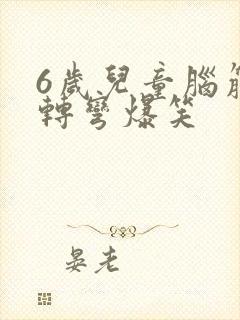 6歲兒童腦筋
轉彎爆笑
晏老